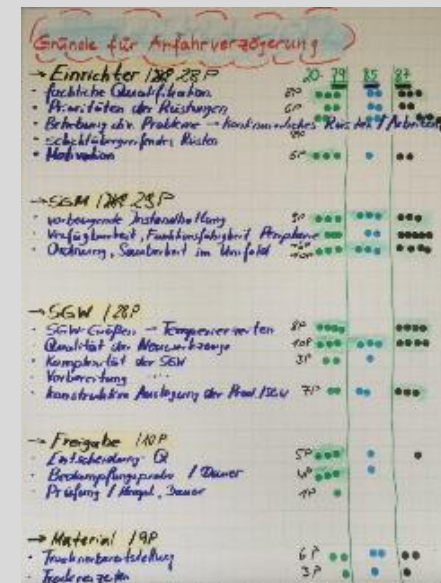 Gründe für Anfahrverzögerung
20- 79 85 87
→ Einrichter / 28P
• fachliche Qualifikation 8P
• Prioritäten der Rüstungen 6P
• Behebung div. Probleme → kontinuierliches Rüsten / Arbeiten
• schichtübergreifendes Rüsten
• Motivation 6P
→ SGM / 29P
• vorbeugende Instandhaltung 9P
• Verfügbarkeit, Funktionsfähigkeit Peripherie
• Ordnung, Sauberkeit im Umfeld 10P
→ SGW / 28P
• SGW-Größen → Temperierzeiten 8P
• Qualität der Neuwerkzeuge 10P
• Komplexität der SGW 3P
• Vorbereitung
• konstruktive Auslegung der Prod./SGW 7P
→ Freigabe / 10P
• Entscheidung Q 5P
• Bedampfungsprobe / Dauer 4P
• Prüfung / Dauer 1P
→ Material / 9P
• Trocknerbereitstellung 6P
• Trocknerzeiten 3P